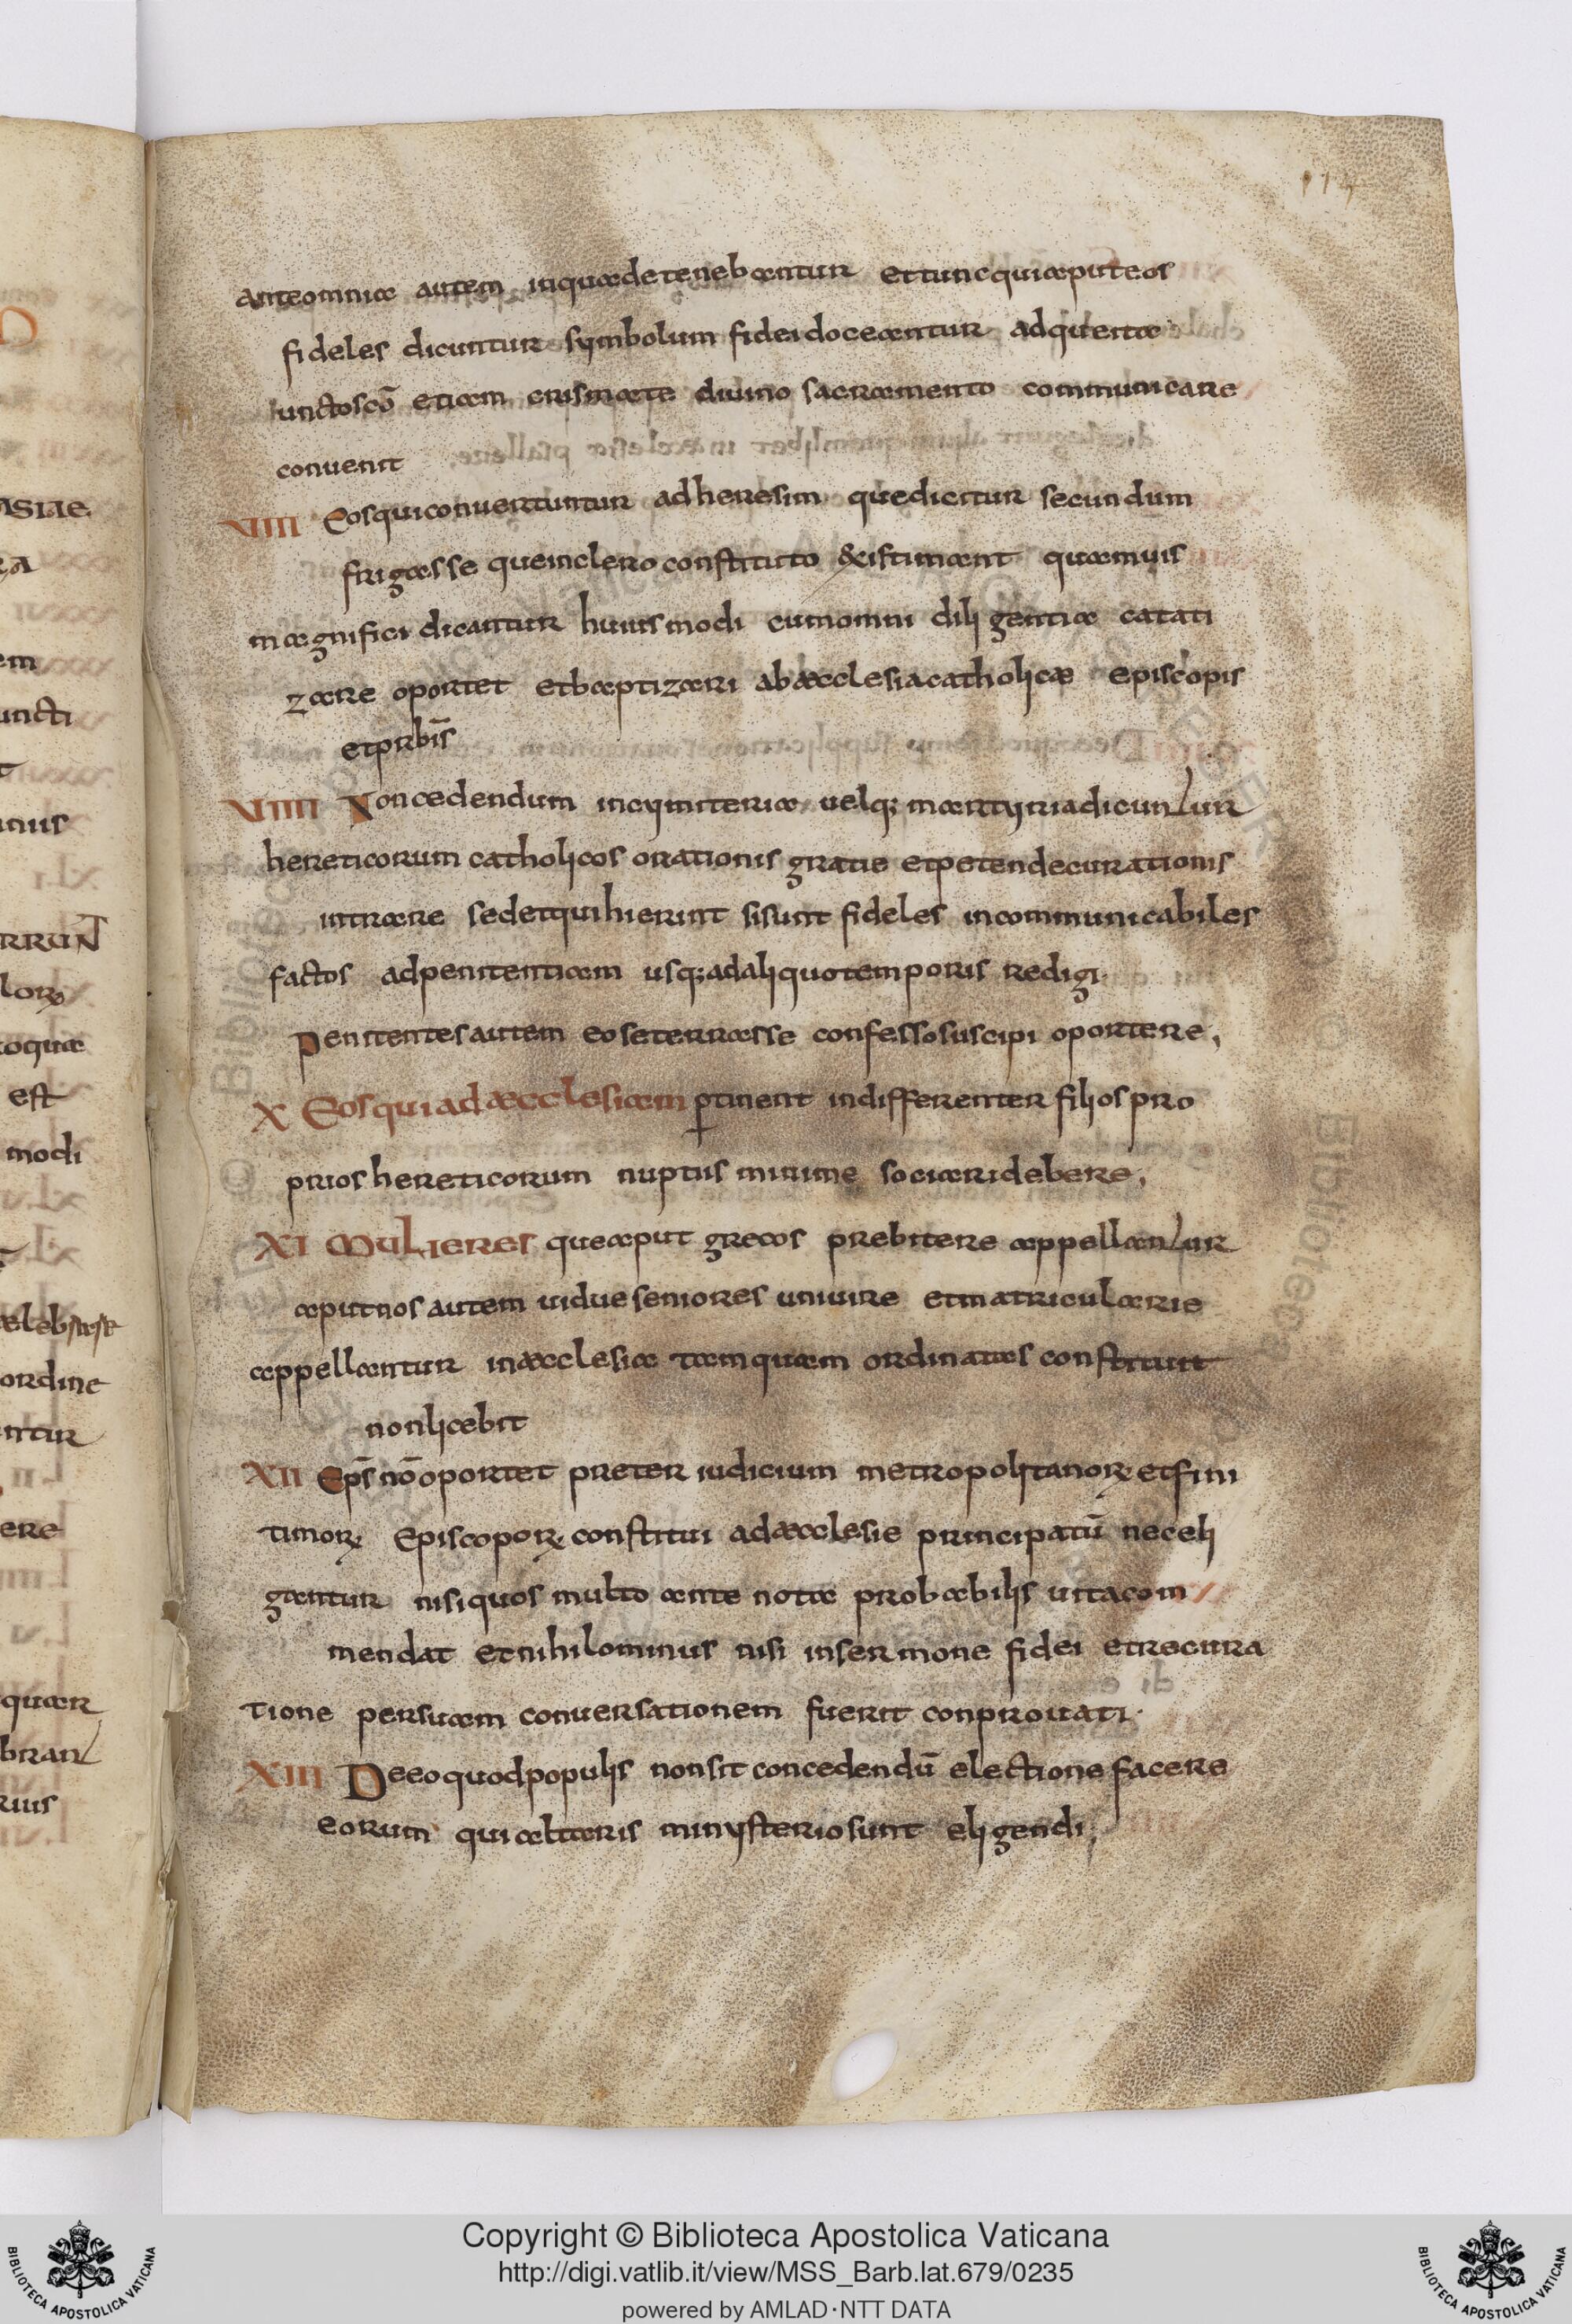 114
anteomnia autem inquadetenebantur ettuncquiaputeos
fideles dicuntur symbolum fideidoceantur adqueita
unctoscō etiam crismate diuino sacramento communicare
conuenit
VIII Eosquiconuertuntur adheresim quedicitur secundum
frigasse queinclero constituto &istimant quamuis
magnifici dicantur huiusmodi cumomni diligentia catati
zare oportet etbaptizari abaecclesiacatholicae episcopis
etprbīs
VIIII Noncedendum incymiteria uelq; martyriadicuntur
hereticorum catholicos orationis gratie etpetendecurationis
intrare sedetquihierint sisunt fideles incommunicabiles
factos adpenitentiam usq;adaliquotemporis redigi·
Penitentesautem eoseterrasse confessosuscipi oportere,
X Eosquiadaecclesiam ꝑtinent indifferenter filiospro
prioshereticorum nuptiis minime sociaridebere,
XI Mulieres queaput grecos prebitere appellantur
aputnosautem uidueseniores uniuire etmatricularie
appellantur inaecclesia tamquam ordinatas constituit
nonlicebit
XII Ep̄s nōoportet preter iudicium metropolitanoꝝ etfini
timoꝝ Episcopoꝝ constitui adaecclesie principatū neceli
gantur nisiquos multo ante nota probabilis uitacom
mendat etnihilominus nisi insermone fidei etrecura
tione persuam conuersationem fuerit conprouati·
XIII Deeoquodpopulis nonsit concedendū electione facere
eorum quialtaris mynisteriosunt eligendi,
Copyright © Biblioteca Apostolica Vaticana
http://digi.vatlib.it/view/MSS_Barb.lat.679/0235
powered by AMLAD·NTT DATA
BIBLIOTECA APOSTOLICA VATICANA
BIBLIOTECA APOSTOLICA VATICANA